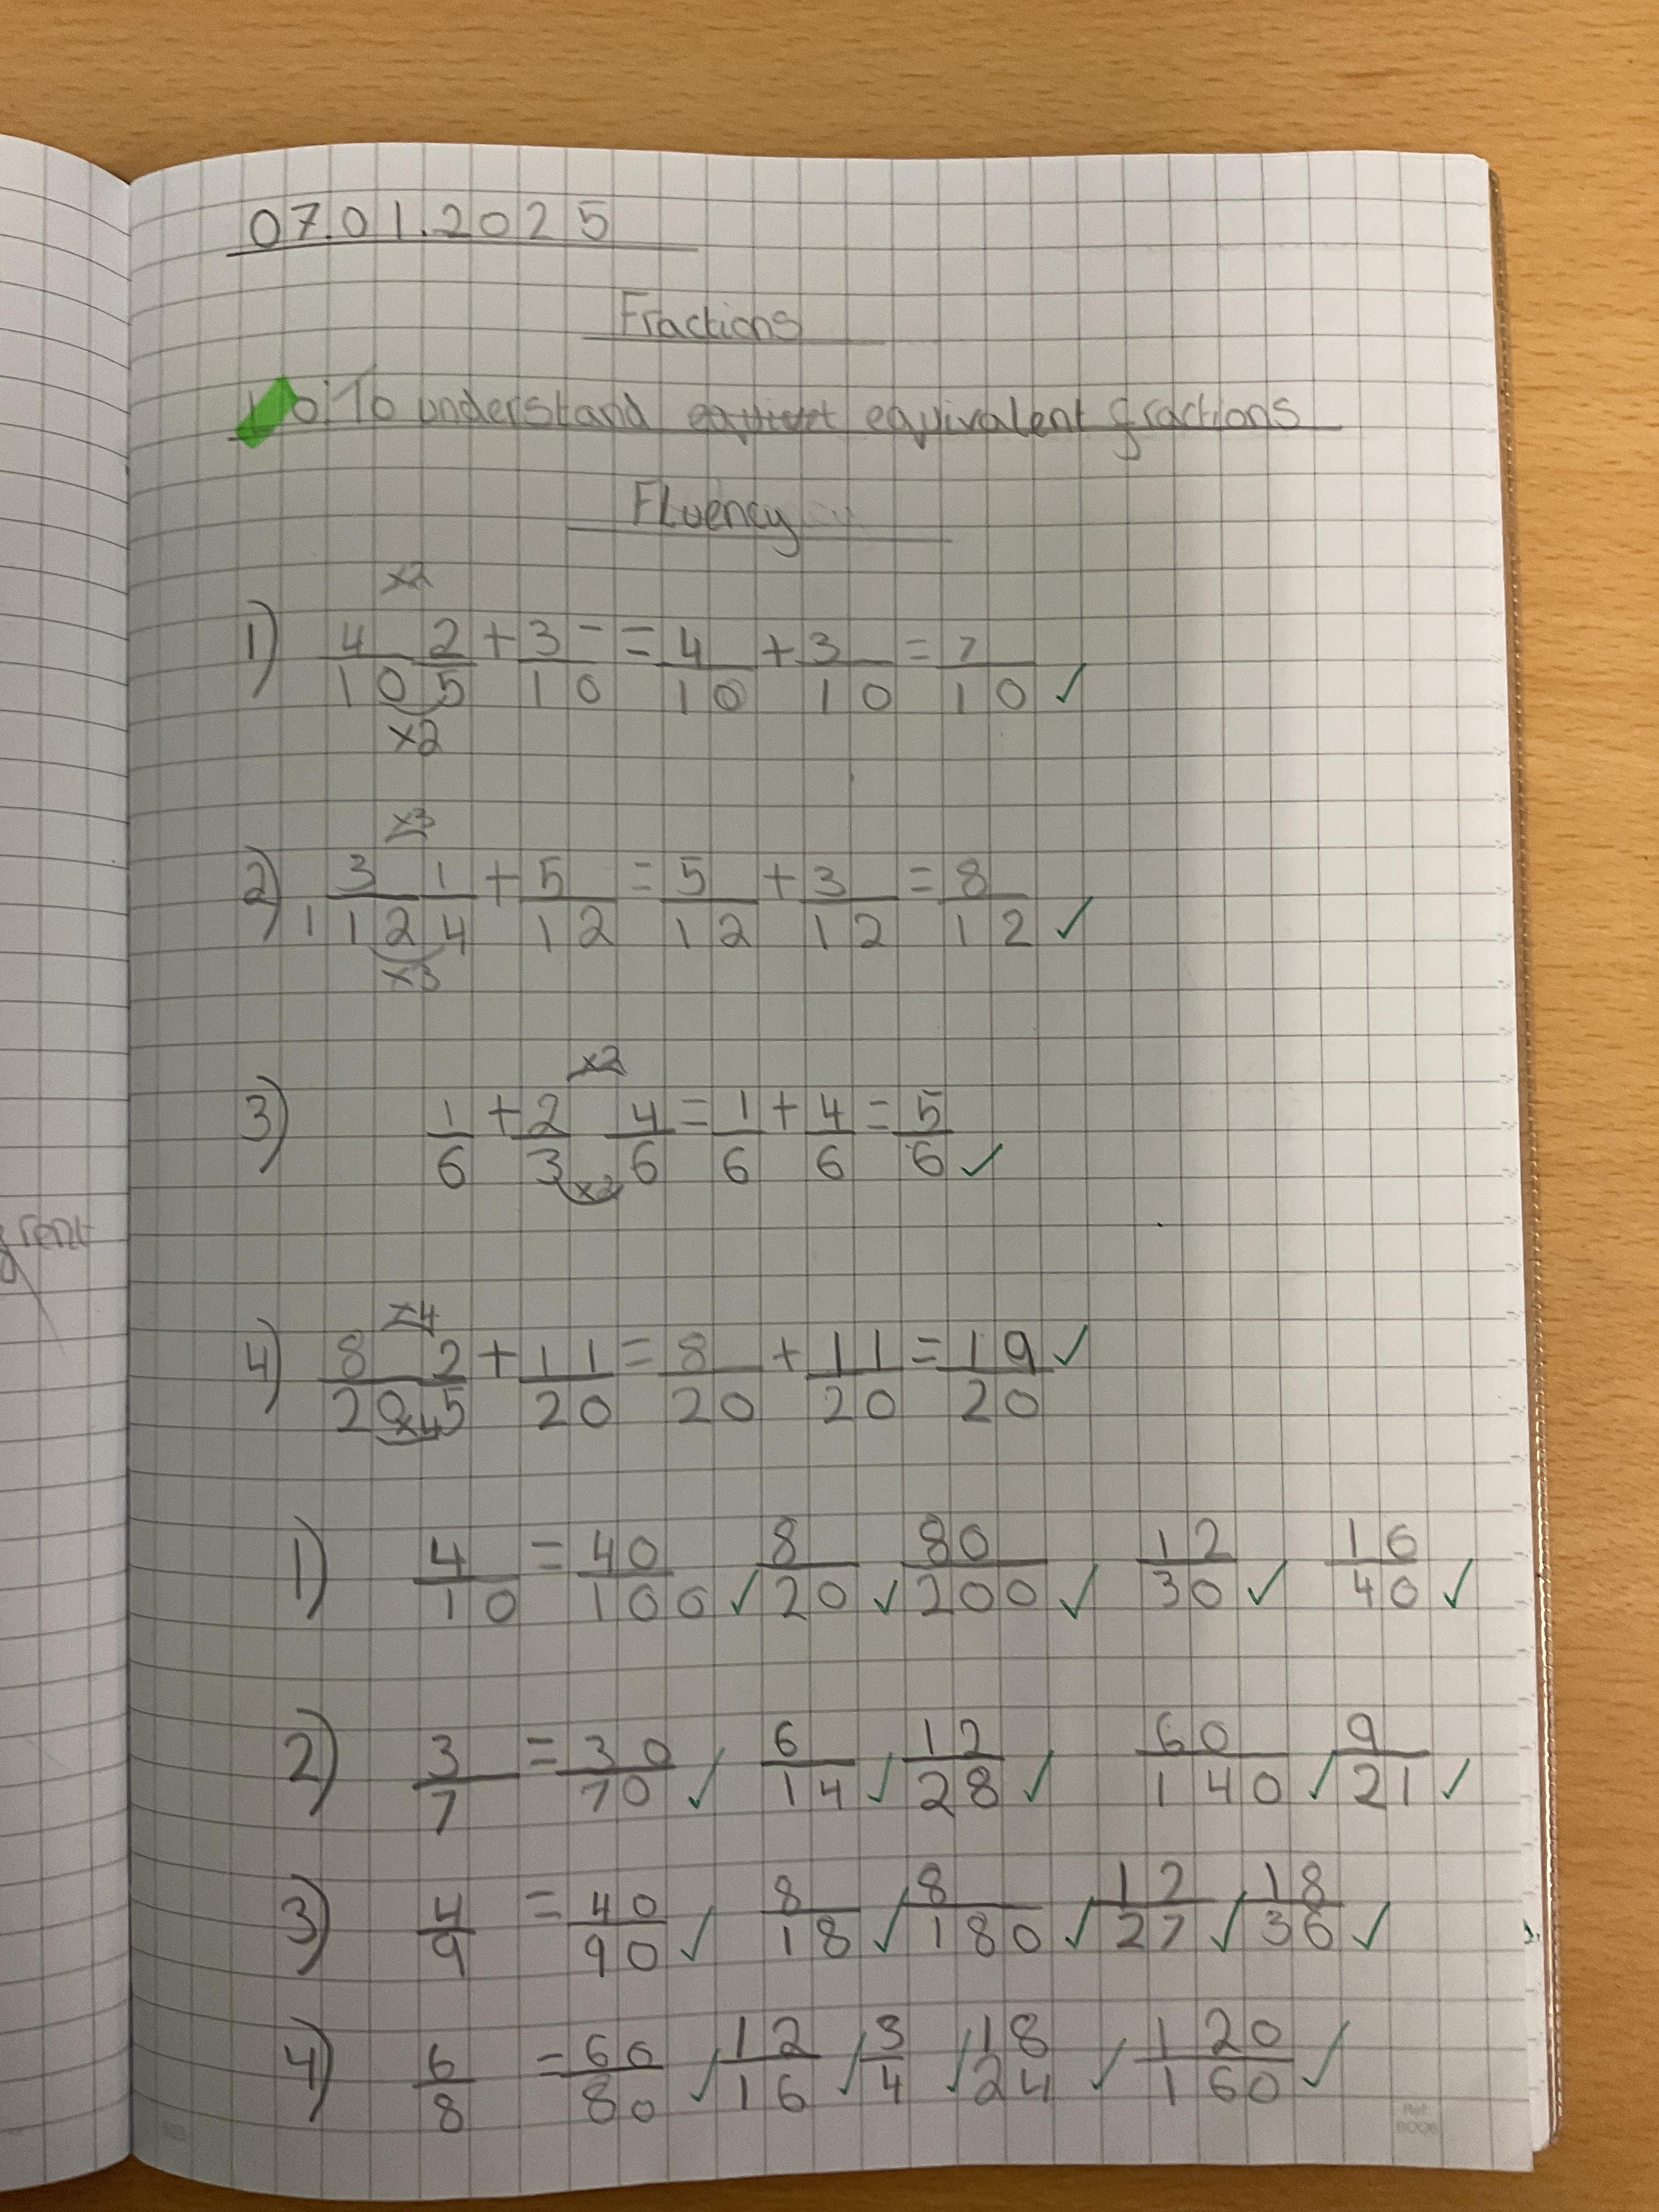 07.01.2025
Fractions
LO: To understand equivalent fractions
Fluency
×2
1) 4/10 2/5 + 3/10 = 4/10 + 3/10 = 7/10 ✓
×2
×3
2) 1 3/12 1/4 + 5/12 = 5/12 + 3/12 = 8/12 ✓
×3
×2
3) 1/6 + 2/3 4/6 = 1/6 + 4/6 = 5/6 ✓
×2
grent
×4
4) 8/20 2/5 + 11/20 = 8/20 + 11/20 = 19/20 ✓
×4
1) 4/10 = 40/100 ✓ 8/20 ✓ 80/200 ✓ 12/30 ✓ 16/40 ✓
2) 3/7 = 30/70 ✓ 6/14 ✓ 12/28 ✓ 60/140 ✓ 9/21 ✓
3) 4/9 = 40/90 ✓ 8/18 ✓ 8/180 ✓ 12/27 ✓ 18/36 ✓
4) 6/8 = 60/80 ✓ 12/16 ✓ 3/4 ✓ 18/24 ✓ 120/160 ✓